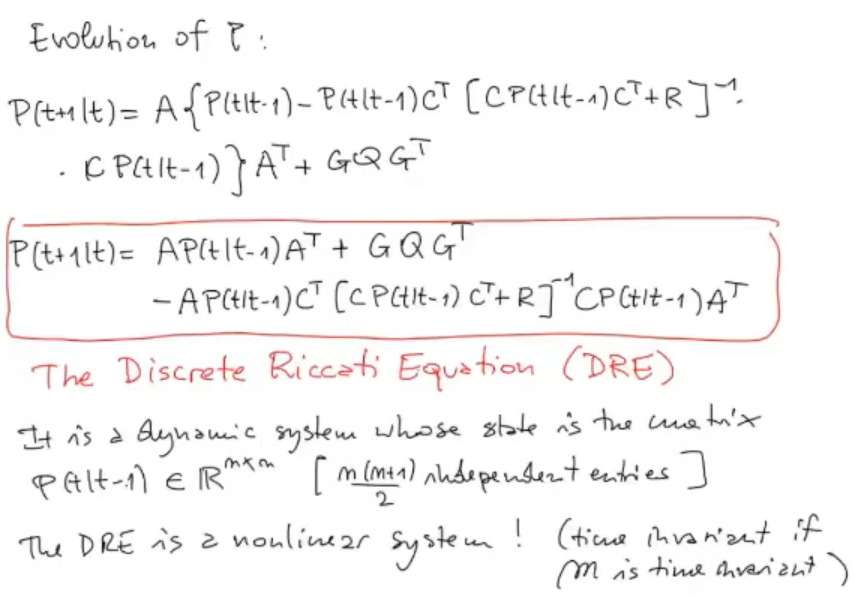 Evolution of P :
P(t+1|t) = A { P(t|t-1) - P(t|t-1)Cᵀ [ CP(t|t-1)Cᵀ + R ]⁻¹ ·
· C P(t|t-1) } Aᵀ + GQGᵀ
P(t+1|t) = AP(t|t-1)Aᵀ + GQGᵀ
- AP(t|t-1)Cᵀ [ CP(t|t-1)Cᵀ + R ]⁻¹ CP(t|t-1)Aᵀ
The Discrete Riccati Equation (DRE)
It is a dynamic system whose state is the matrix
P(t|t-1) ∈ ℝⁿˣⁿ [ n(n+1)/2 independent entries ]
The DRE is a nonlinear system ! (time invariant if
M is time invariant)